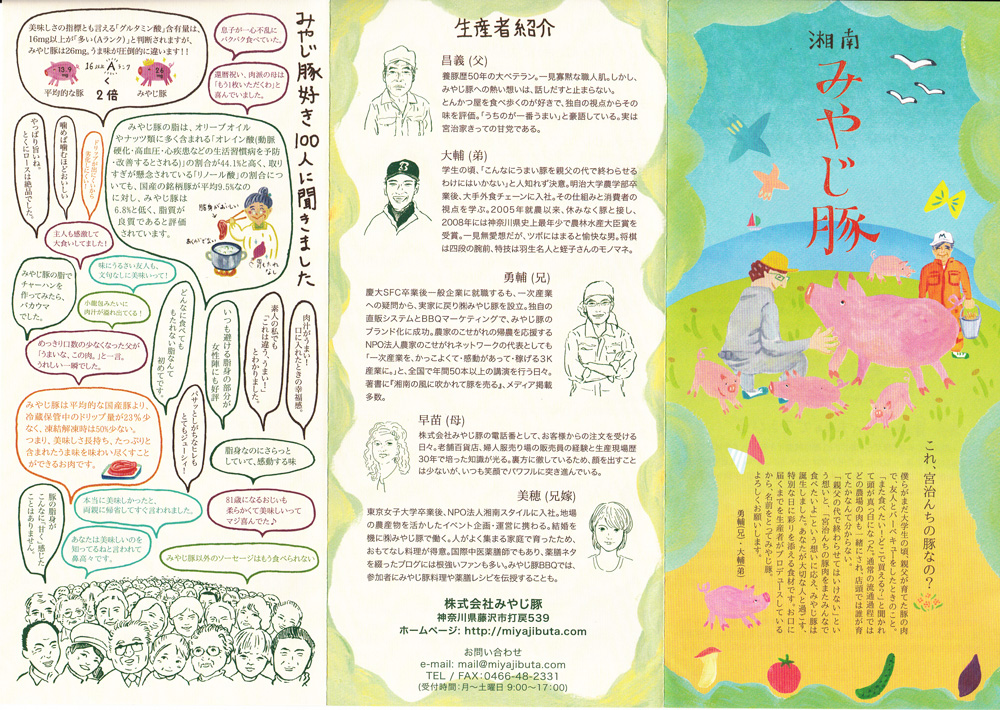 みやじ豚好き100人に聞きました
美味しさの指標とも言える「グルタミン酸」含有量は、
16mg以上が「多い（Aランク）」と判断されますが、
みやじ豚は26mg。うま味が圧倒的に違います!!
13.9mg
16以上Aランク
26mg
平均的な豚
<
2倍
みやじ豚
息子が一心不乱に
バクバク食べていた。
還暦祝い、肉派の母は
「もう1枚いただくわ」と
喜んでいました。
やっぱり旨いね。
とくにロースは絶品でした。
噛めば噛むほどおいしい
みやじ豚の脂は、オリーブオイル
やナッツ類に多く含まれる「オレイン酸（動脈
硬化・高血圧・心疾患などの生活習慣病を予防
・改善するとされる）」の割合が44.1%と高く、取り
すぎが懸念されている「リノール酸」の割合につ
いても、国産の銘柄豚が平均9.5%なの
に対し、みやじ豚は
6.8%と低く、脂質が
良質であると評価
されています。
脂身がおいしい
あくがでない
主人も感激して
大食いしてました！
味にうるさい友人も、
文句なしに美味いって！
みやじ豚の脂で
チャーハンを
作ってみたら、
バカウマ
でした。
小籠包みたいに
肉汁が溢れ出てる！
めっきり口数の少なくなった父が
「うまいな、この肉。」と一言。
うれしい一瞬でした。
どんなに食べても
もたれない脂なんて
初めてです。
いつも避ける脂身の部分が
女性陣にも好評
素人の私でも
「これは違う、うまい！」
とわかりました。
肉汁がうまい！
口に入れたときの幸福感。
みやじ豚は平均的な国産豚より、
冷蔵保管中のドリップ量が23%少
なく、凍結解凍時は50%少ない。
つまり、美味しさ長持ち、たっぷりと
含まれたうま味を味わい尽くすこと
ができるお肉です。
パサッとしがちなヒレも
とてもジューシィ！
脂身なのにさらっと
していて、感動する味
豚の脂身が、
こんなに「甘く」感じた
ことはありません。
本当に美味しかったと、
両親に帰省してすぐ言われました。
81歳になるおじいも
柔らかくて美味しいって
マジ喜んでた♪
あなたは美味しいのを
知ってるねと言われて
鼻高々です。
みやじ豚以外のソーセージはもう食べられない
生産者紹介
昌義（父）
養豚歴50年の大ベテラン。一見寡黙な職人肌。しかし、
みやじ豚への熱い想いは、話しだすと止まらない。
とんかつ屋を食べ歩くのが好きで、独自の視点からその
味を評価。「うちのが一番うまい」と豪語している。実は
宮治家きっての甘党である。
大輔（弟）
学生の頃、「こんなにうまい豚を親父の代で終わらせる
わけにはいかない」と人知れず決意。明治大学農学部卒
業後、大手外食チェーンに入社。その仕組みと消費者の
視点を学ぶ。2005年就農以来、休みなく豚と接し、
2008年には神奈川県史上最年少で農林水産大臣賞を
受賞。一見無愛想だが、ツボにはまると愉快な男。将棋
は四段の腕前、特技は羽生名人と蛭子さんのモノマネ。
勇輔（兄）
慶大SFC卒業後一般企業に就職するも、一次産業
への疑問から、実家に戻り㈱みやじ豚を設立。独自の
直販システムとBBQマーケティングで、みやじ豚の
ブランド化に成功。農家のこせがれの帰農を応援する
NPO法人農家のこせがれネットワークの代表としても
「一次産業を、かっこよくて・感動があって・稼げる3K
産業に。」と、全国で年間50本以上の講演を行う日々。
著書に『湘南の風に吹かれて豚を売る』。メディア掲載
多数。
早苗（母）
株式会社みやじ豚の電話番として、お客様からの注文を受ける
日々。老舗百貨店、婦人服売り場の販売員の経験と生産現場歴
30年で培った知識が光る。裏方に徹しているため、顔を出すこと
は少ないが、いつも笑顔でパワフルに突き進んでいる。
美穂（兄嫁）
東京女子大学卒業後、NPO法人湘南スタイルに入社。地場
の農産物を活かしたイベント企画・運営に携わる。結婚を
機に㈱みやじ豚で働く。人がよく集まる家庭で育ったため、
おもてなし料理が得意。国際中医薬膳師でもあり、薬膳ネタ
を綴ったブログには根強いファンも多い。みやじ豚BBQでは、
参加者にみやじ豚料理や薬膳レシピを伝授することも。
株式会社みやじ豚
神奈川県藤沢市打戻539
ホームページ：http://miyajibuta.com
お問い合わせ
e-mail: mail@miyajibuta.com
TEL / FAX：0466-48-2331
（受付時間：月～土曜日 9:00～17:00）
湘南
みやじ豚
M
これ、宮治んちの豚なの？
僕らがまだ大学生の頃、親父が育てた豚の肉
で、友人とバーベキューをしたときのこと。
「また食べたい！どこで買える？」と聞かれ
て頭が真っ白になった。通常の流通過程では
どの農場の肉も一緒にされ、店頭では誰が育
てたかなんてわからない。
「親父の代で終わらせてはいけない」とい
う想いと、「宮治んちの豚肉をまたみんなで
食べたいよ」という想いに応え、みやじ豚は
誕生しました。あなたが大切な人と過ごす、
特別な日に彩りを添える食材です。お口に
届くまでを生産者がプロデュースしている
から、名前をとってみやじ豚。
よろしくお願いします。
勇輔（兄）・大輔（弟）